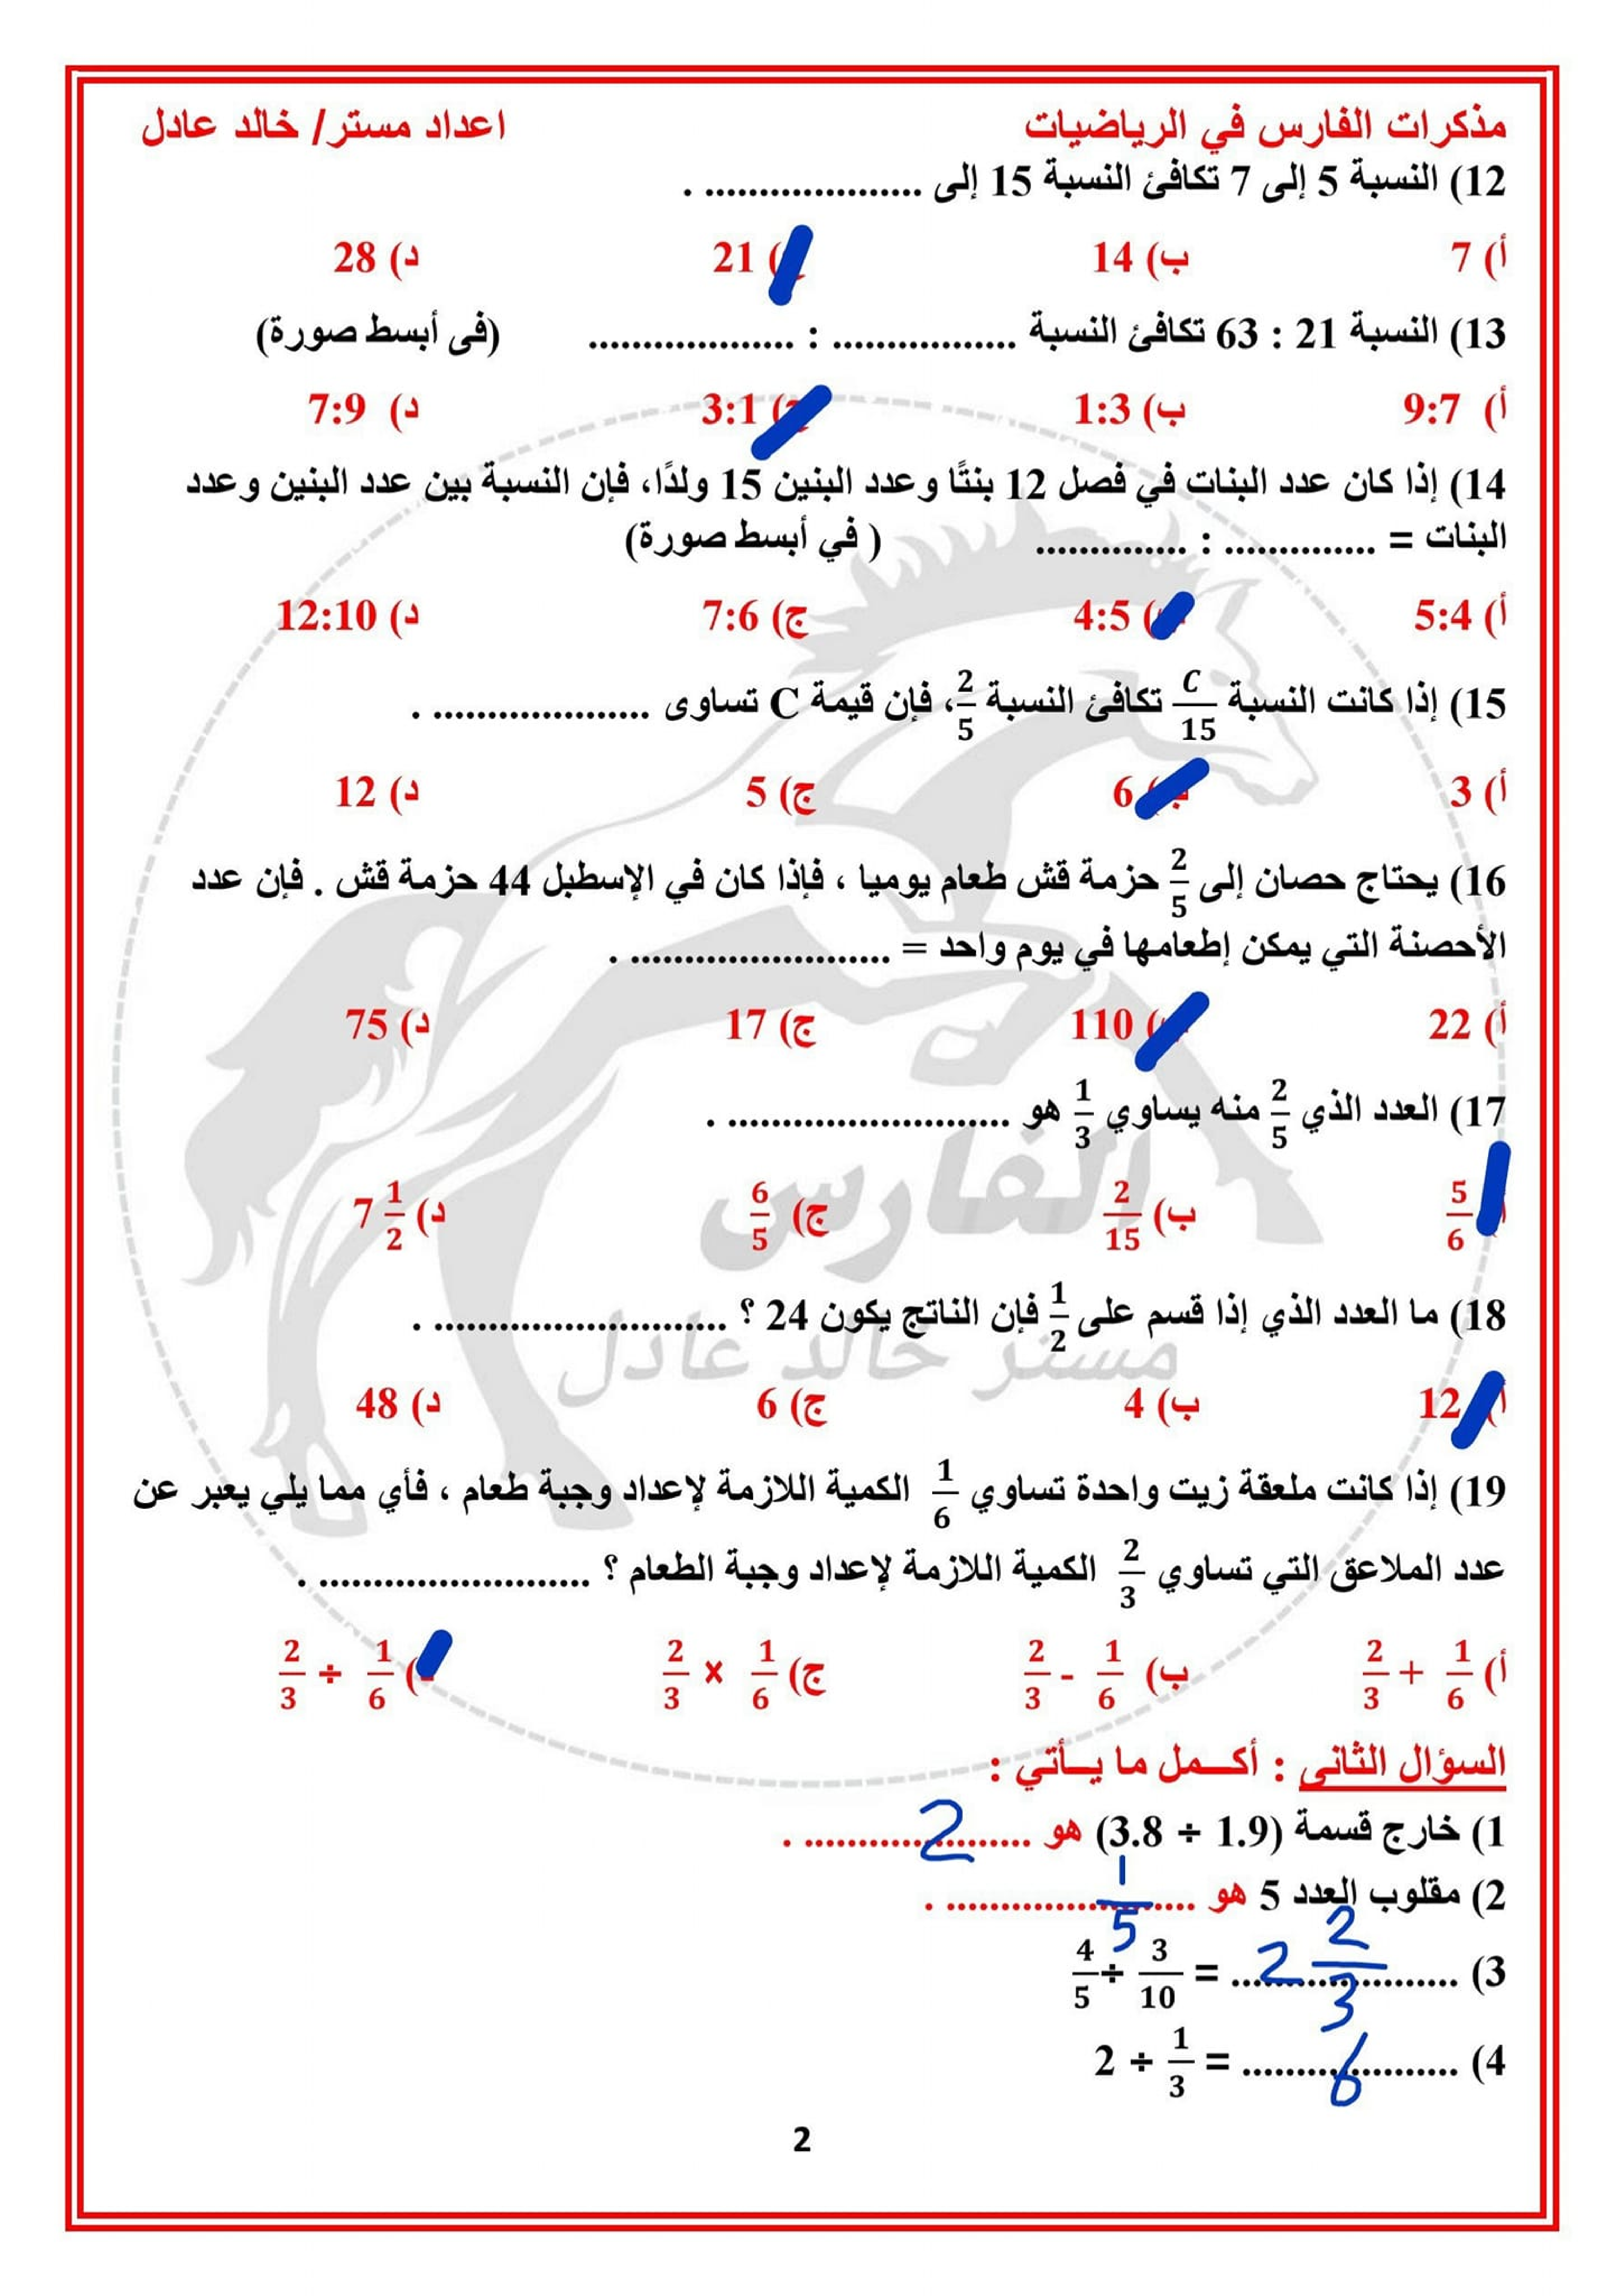 مذكرات الفارس في الرياضيات اعداد مستر/ خالد عادل
12) النسبة 5 إلى 7 تكافئ النسبة 15 إلى .................... .
أ) 7 ب) 14 ج) 21 د) 28
13) النسبة 21 : 63 تكافئ النسبة ................. : ................... (فى أبسط صورة)
أ) 9:7 ب) 1:3 ج) 3:1 د) 7:9
14) إذا كان عدد البنات في فصل 12 بنتًا وعدد البنين 15 ولدًا، فإن النسبة بين عدد البنين وعدد
البنات = .............. : .............. ( في أبسط صورة)
أ) 5:4 ب) 4:5 ج) 7:6 د) 12:10
15) إذا كانت النسبة C/15 تكافئ النسبة 2/5، فإن قيمة C تساوى .................... .
أ) 3 ب) 6 ج) 5 د) 12
16) يحتاج حصان إلى 2/5 حزمة قش طعام يوميا ، فإذا كان في الإسطبل 44 حزمة قش . فإن عدد
الأحصنة التي يمكن إطعامها في يوم واحد = ........................ .
أ) 22 ب) 110 ج) 17 د) 75
17) العدد الذي 2/5 منه يساوي 1/3 هو .......................... .
أ) 5/6 ب) 2/15 ج) 6/5 د) 7 1/2
الفارس
18) ما العدد الذي إذا قسم على 1/2 فإن الناتج يكون 24 ؟ ........................... .
مستر خالد عادل
أ) 12 ب) 4 ج) 6 د) 48
19) إذا كانت ملعقة زيت واحدة تساوي 1/6 الكمية اللازمة لإعداد وجبة طعام ، فأي مما يلي يعبر عن
عدد الملاعق التي تساوي 2/3 الكمية اللازمة لإعداد وجبة الطعام ؟ ......................... .
أ) 2/3 + 1/6 ب) 2/3 - 1/6 ج) 2/3 × 1/6 د) 2/3 ÷ 1/6
السؤال الثانى : أكـــمل ما يـــأتي :
1) خارج قسمة (3.8 ÷ 1.9) هو 2 .
2) مقلوب العدد 5 هو 1/5 .
3) 4/5 ÷ 3/10 = 2 2/3
4) 2 ÷ 1/3 = 6
2